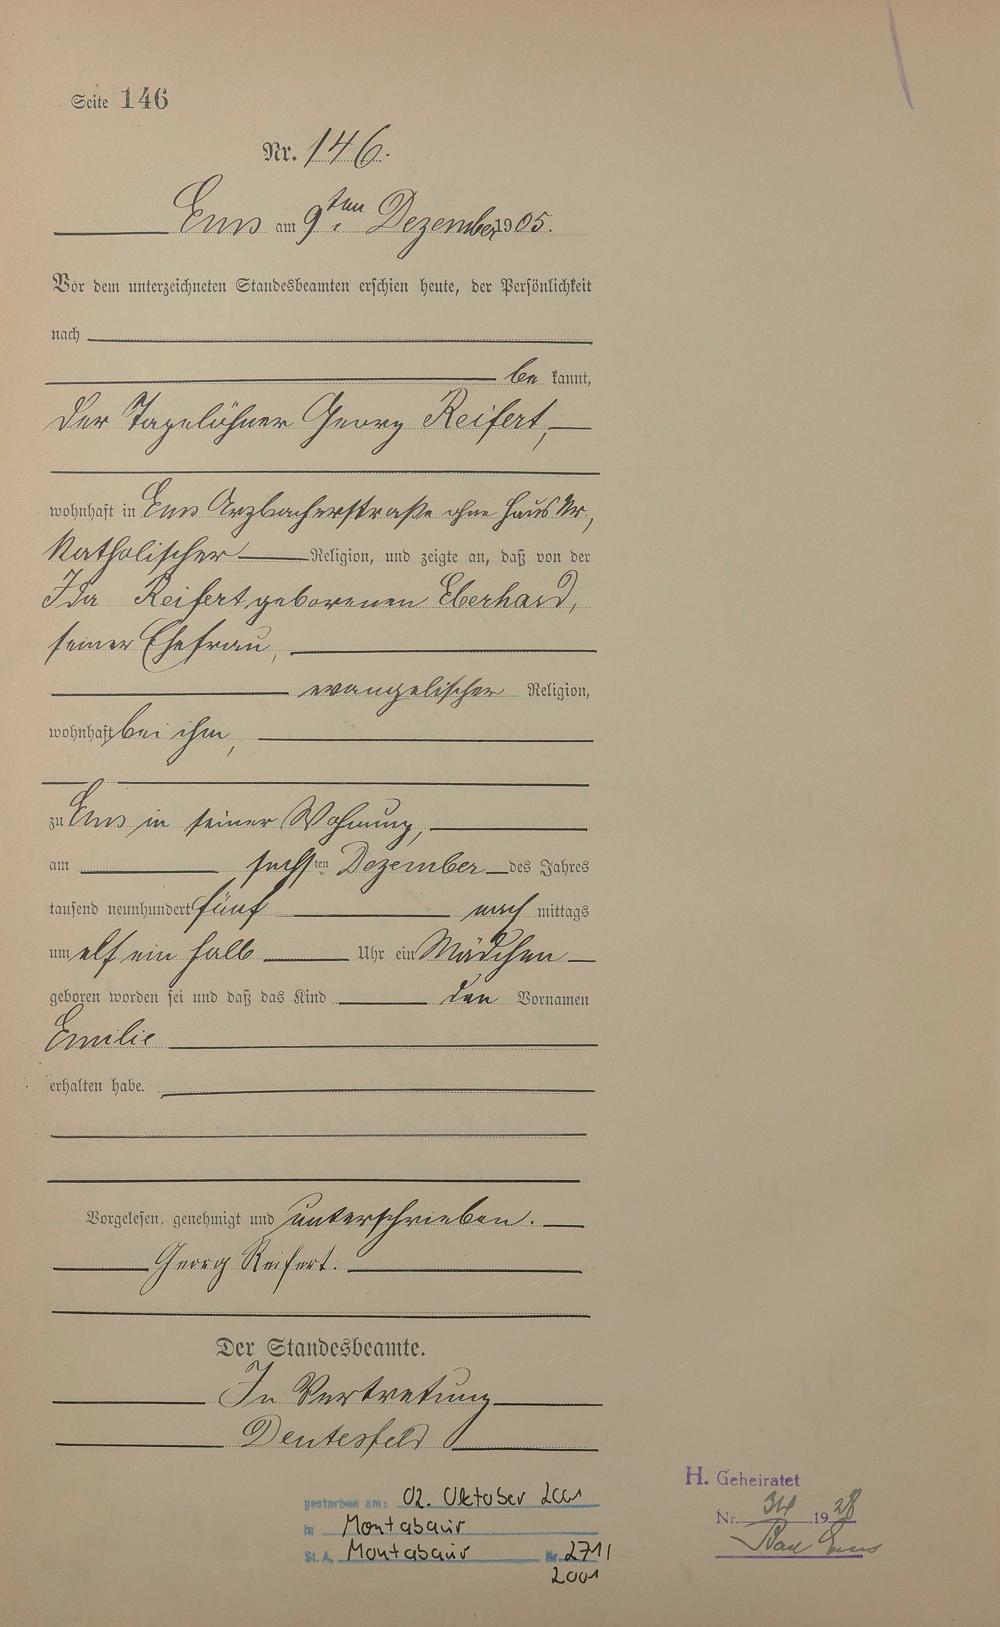 Seite 146
Nr. 146.
Ems am 9ten Dezember 1905.
Vor dem unterzeichneten Standesbeamten erschien heute, der Persönlichkeit
nach
be kannt,
der Tagelöhner Georg Reifert,
wohnhaft in Ems Arzbacherstraße ohne Haus Nr.,
katholischer Religion, und zeigte an, daß von der
Ida Reifert geborenen Eberhard,
seiner Ehefrau,
evangelischer Religion,
wohnhaft bei ihm,
zu Ems in seiner Wohnung,
am sechsten Dezember des Jahres
tausend neunhundert fünf nach mittags
um elf ein halb Uhr ein Mädchen
geboren worden sei und daß das Kind den Vornamen
Emilie
erhalten habe.
Vorgelesen, genehmigt und unterschrieben.
Georg Reifert.
Der Standesbeamte.
In Vertretung
gestorben am: 02. Oktober 2001
in Montabaur
St. A. Montabaur Nr. 271/
2001
H. Geheiratet
Nr. 34 1928
Bad Ems